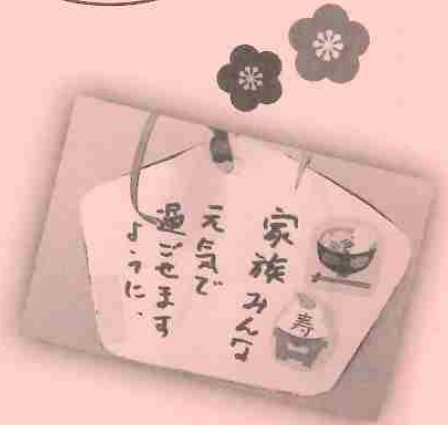 寿
家族みんな
元気で
過ごせます
ように、